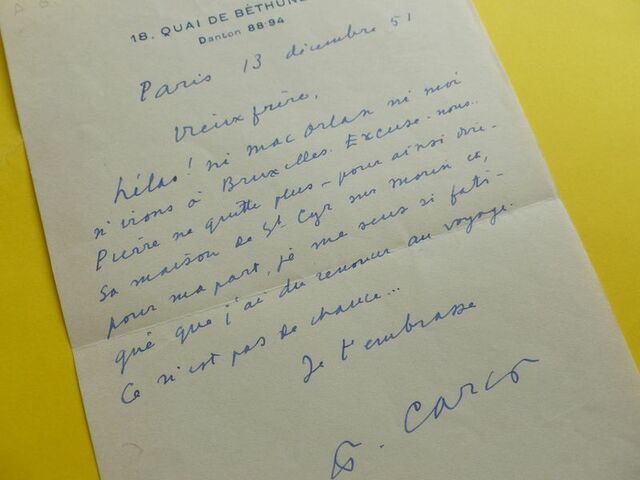 18, QUAI DE BÉTHUNE
Danton 88-94
Paris 13 décembre 51
Vieux frère,
hélas! ni mac orlan ni moi
n'irons à Bruxelles. Excuse-nous.
Pierre ne quitte plus – pour ainsi dire –
sa maison de St Cyr sur morin et,
pour ma part, je me sens si fati-
gué que j'ai du renoncer au voyage.
Ce n'est pas de chance...
Je t'embrasse
F. Carco